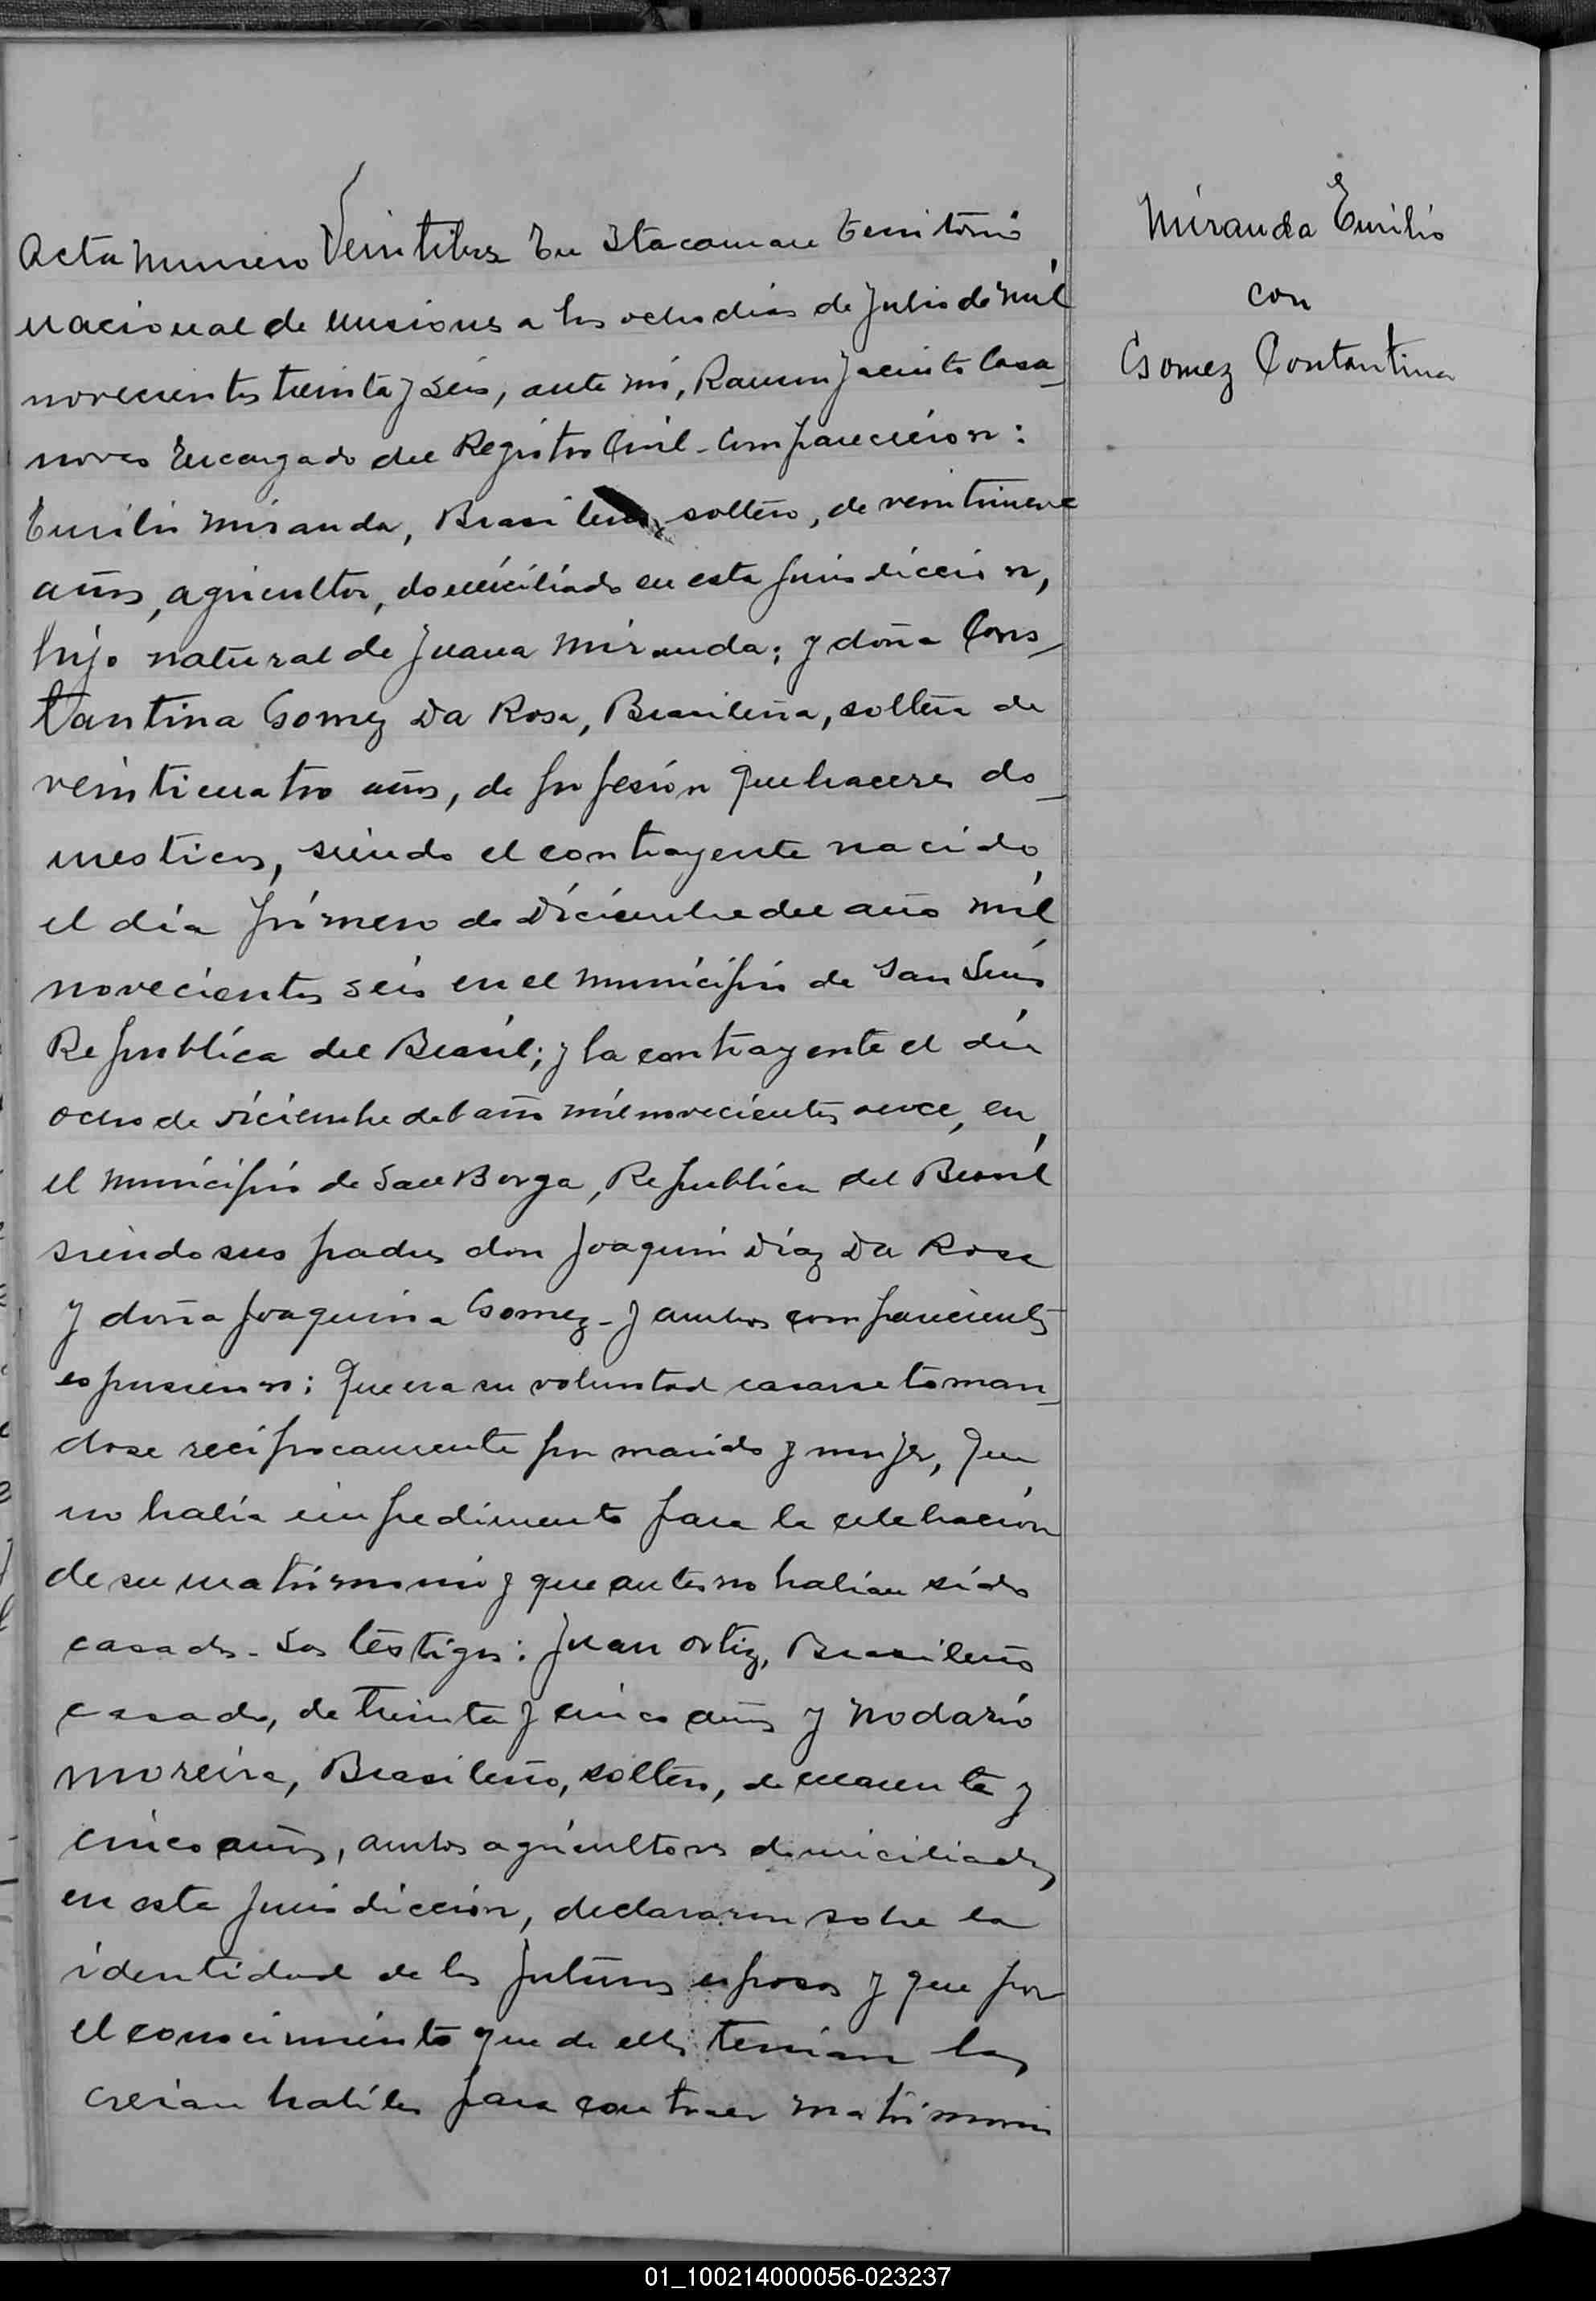 Acta numero Veintitres En Itacaruare territorio
nacional de Misiones a los ocho dias de Julio de mil
novecientos treinta y seis, ante mi, Ramon Jacinto Casa-
noves Encargado del Registro Civil - Comparecieron:
Emilio Miranda, Brasileño, soltero, de veintinueve
años, agricultor, domiciliado en esta jurisdiccion,
hijo natural de Juana Miranda; y doña Cons-
tantina Gomez Da Rosa, Brasileña, soltera de
veinticuatro años, de profesión quehaceres do-
mesticos, siendo el contrayente nacido
el día primero de Diciembre del año mil
novecientos seis en el municipio de San Luis
Republica del Brasil; y la contrayente el dia
ocho de diciembre del año mil novecientos once, en
el municipio de San Borga, Republica del Brasil
siendo sus padres don Joaquin Díaz Da Rosa
y doña Joaquina Gomez - y ambos comparecientes
espusieron: Que era su voluntad casarse toman-
dose reciprocamente por marido y mujer, que
no habia impedimento para la celebracion
de su matrimonio y que antes no habian sido
casados - Los testigos: Juan Ortiz, Brasileño
casado, de treinta y cinco años y Nodario
Moreira, Brasileño, soltero, de cuarenta y
cinco años, ambos agricultores domiciliados
en esta jurisdiccion, declararon sobre la
identidad de los futuros esposos y que por
el conocimiento que de ellos tenian los
creian habiles para contraer matrimonio
Miranda Emilio
con
Gomez Contantina
01_100214000056-023237